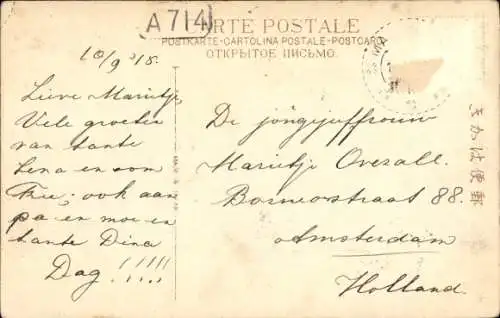 A 714
CARTE POSTALE
POSTKARTE-CARTOLINA POSTALE-POSTCARD
ОТКРЫТОЕ ПИСЬМО.
10/9 '15.
Lieve Marietje,
Vele groeten
van tante
Lena en oom
Frie; ook aan
pa en moe en
tante Dina
Dag!!!!!
De jongejuffrouw
Marietje Overall.
Borneostraat 88.
Amsterdam
Holland.
きかは便郵